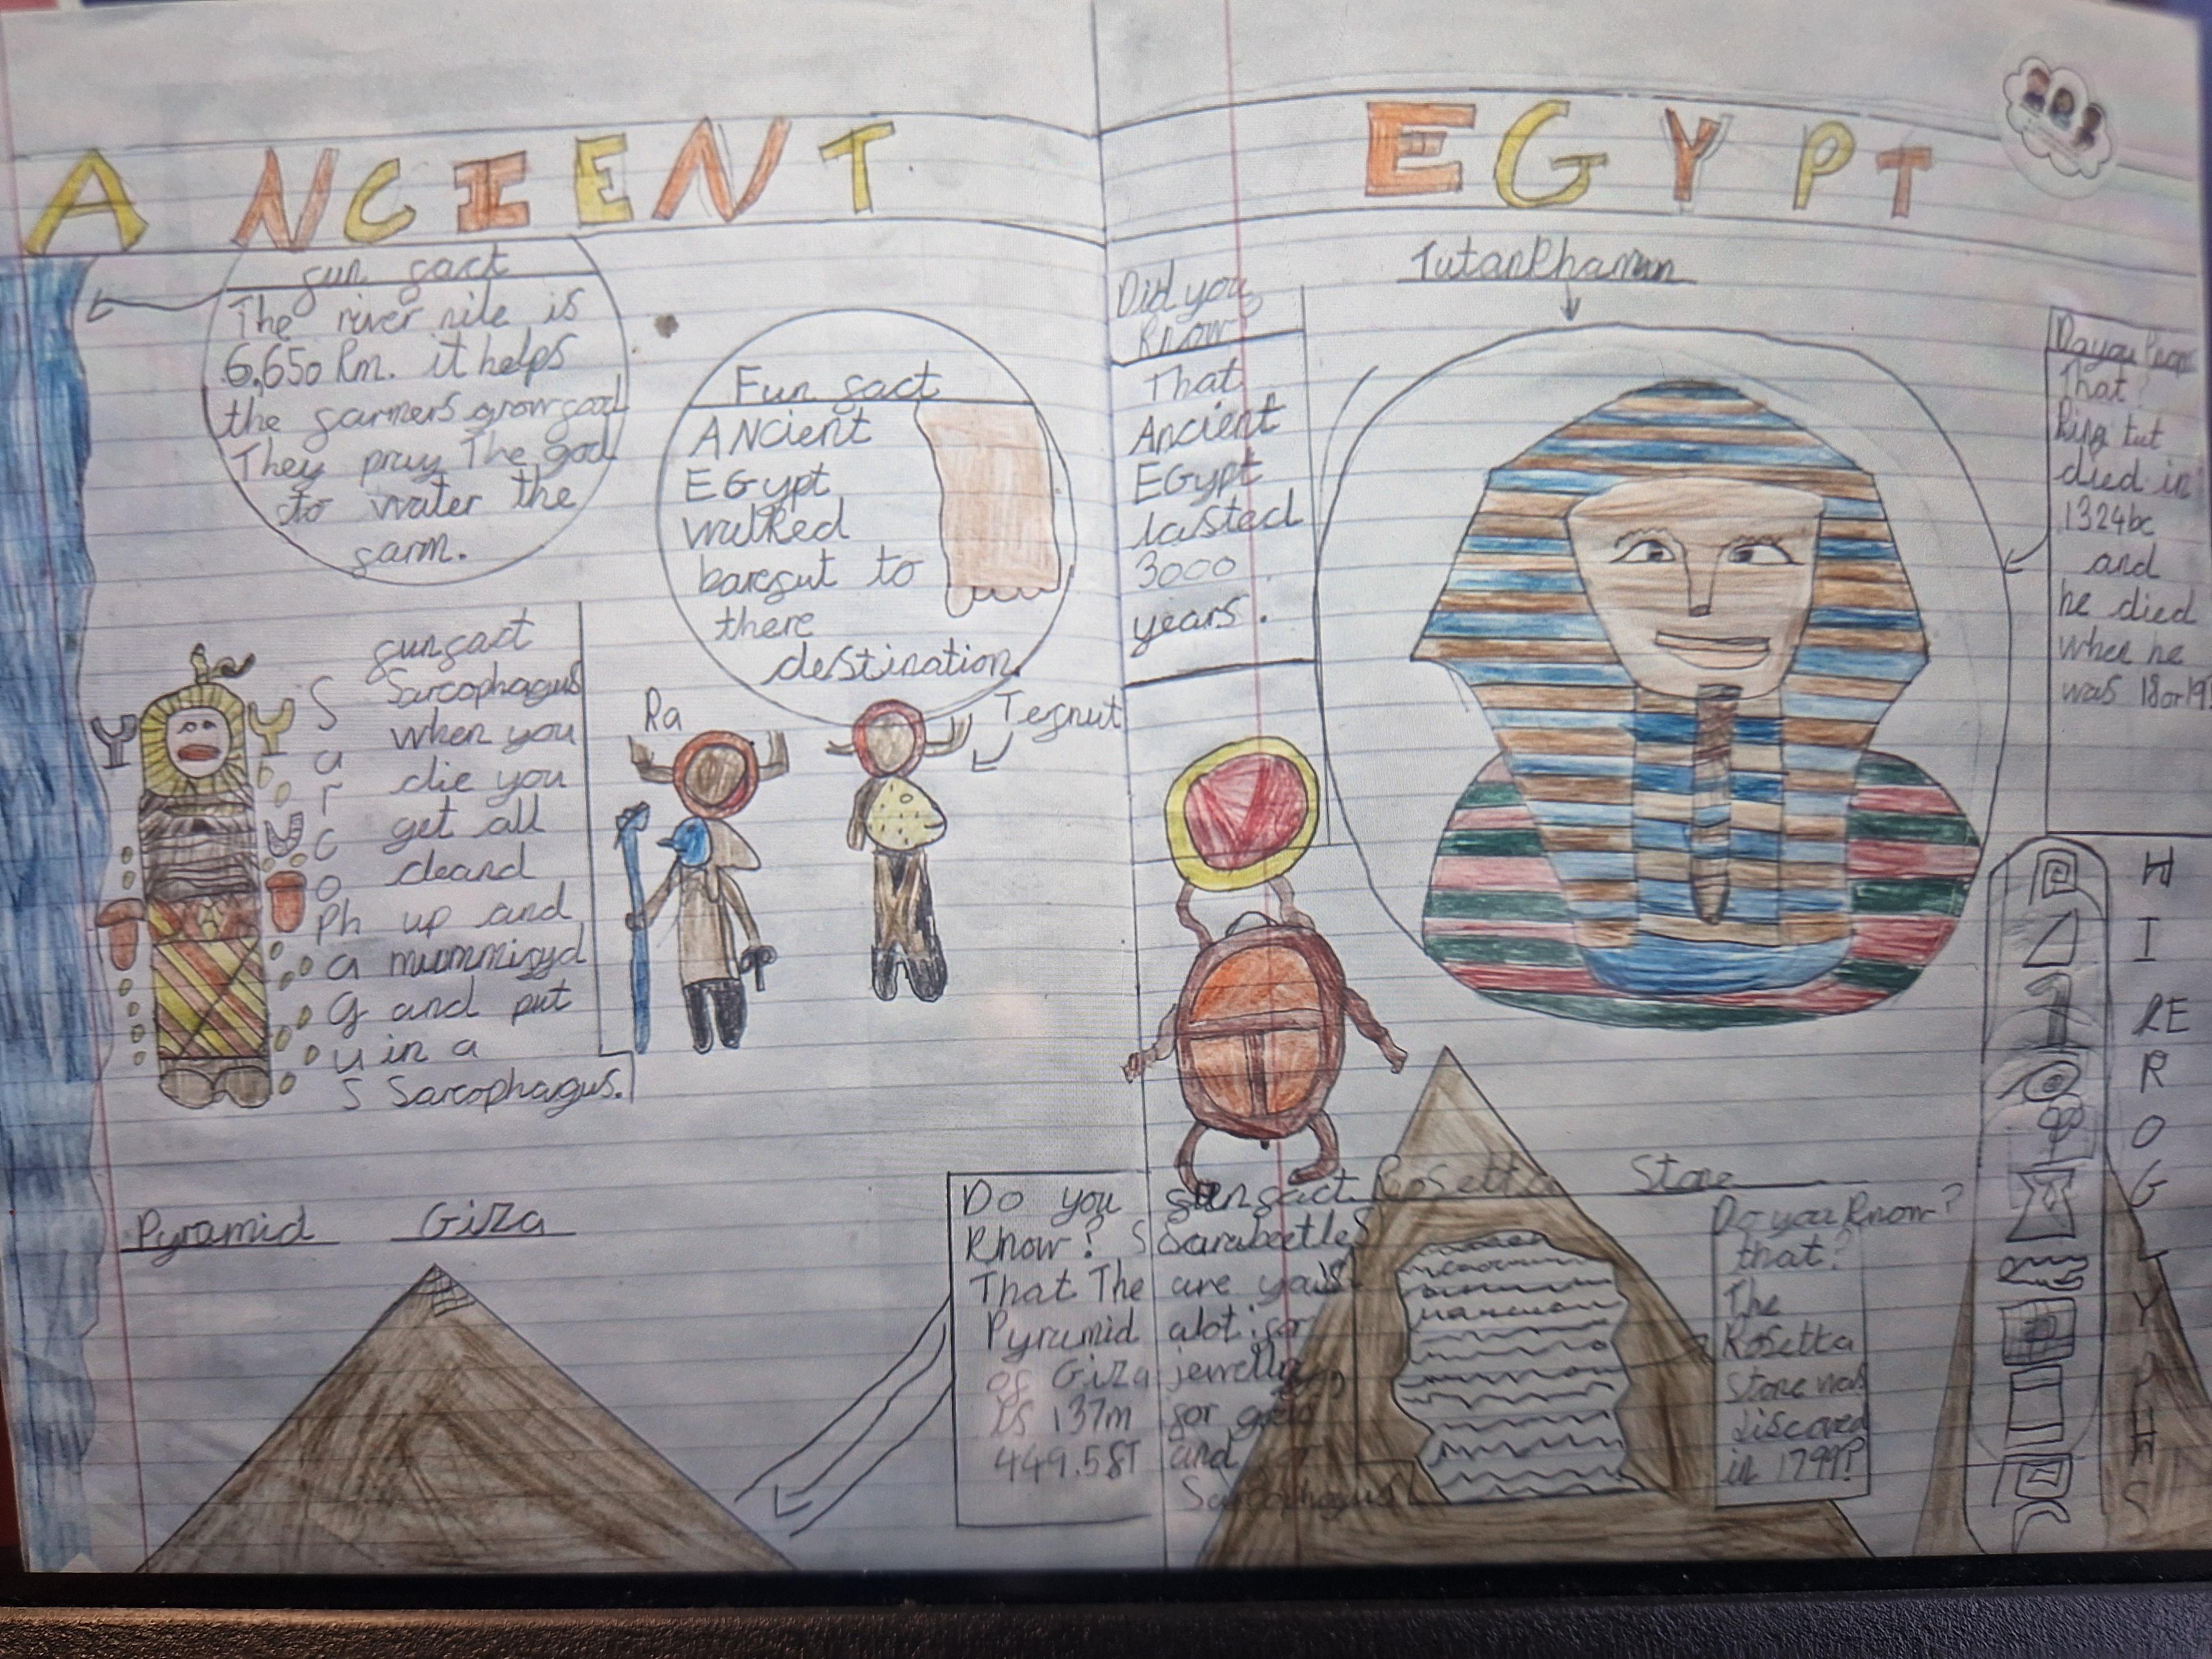 ANCIENT EGYPT
fun fact
The river nile is
6,650 km. it helps
the farmers grow food
They pray The god
to water the
farm.
Fun fact
ANcient
EGypt
walked
barefut to
there
destination.
fun fact
Sarcophagus
when you
die you
get all
cleand
up and
mummifyd
and put
in a
Sarcophagus.
S
a
r
c
o
Ph
a
g
u
S
Ra
Tefnut
Pyramid Giza
Do you
Know?
That The
Pyramid
of Giza
is 137m
449.58T
fun fact
Sarabeetles
are
alot for
jewellery
for
and
Sarcophagus
Did you
Know?
That
Ancient
EGypt
lasted
3000
years.
Tutankhamun
Do you know
That?
King tut
died in
1324bc
and
he died
when he
was 18 or 19?
Rosetta Stone
Do you Know?
that?
The
Rosetta
Stone was
discoved
in 1799?
H
I
RE
R
O
G
L
Y
P
H
S